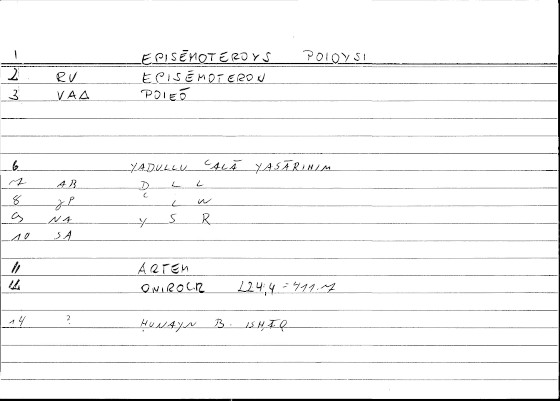 1 EPISĒMOTEROYS POIOYSI
2 RV EPISĒMOTERON
3 VAΔ POIEŌ
6 YADULLU ʿALĀ YASĀRIHIM
7 AB D L L
8 gP ʿ L W
9 NA Y S R
10 SA
11 ARTEM
12 ONIROCR 224,4 = 411.7
14 ? ḤUNAYN B. ISḤĀQ